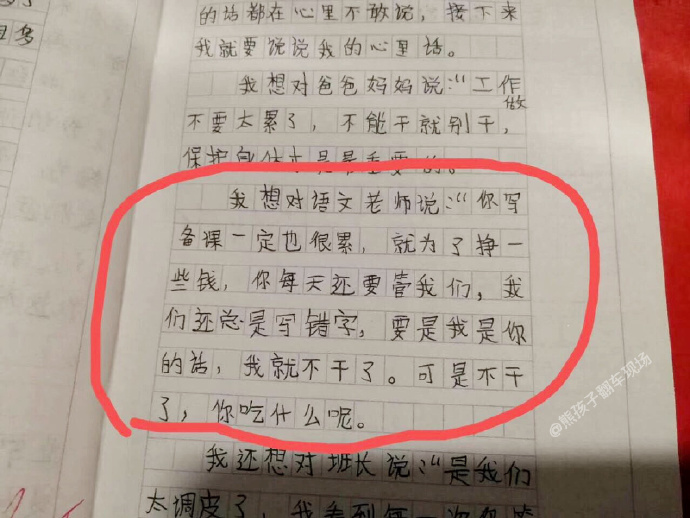 的话都在心里不敢说，接下来
我就要说说我的心里话。
我想对爸爸妈妈说："工作
做
不要太累了，不能干就别干，
保护身体才是最重要的。
我想对语文老师说："你写
备课一定也很累，就为了挣一
些钱，你每天还要管我们，我
们还总是写错字，要是我是你
的话，我就不干了。可是不干
了，你吃什么呢。
我还想对班长说："是我们
太调皮了，我看到每一次你
@熊孩子翻车现场